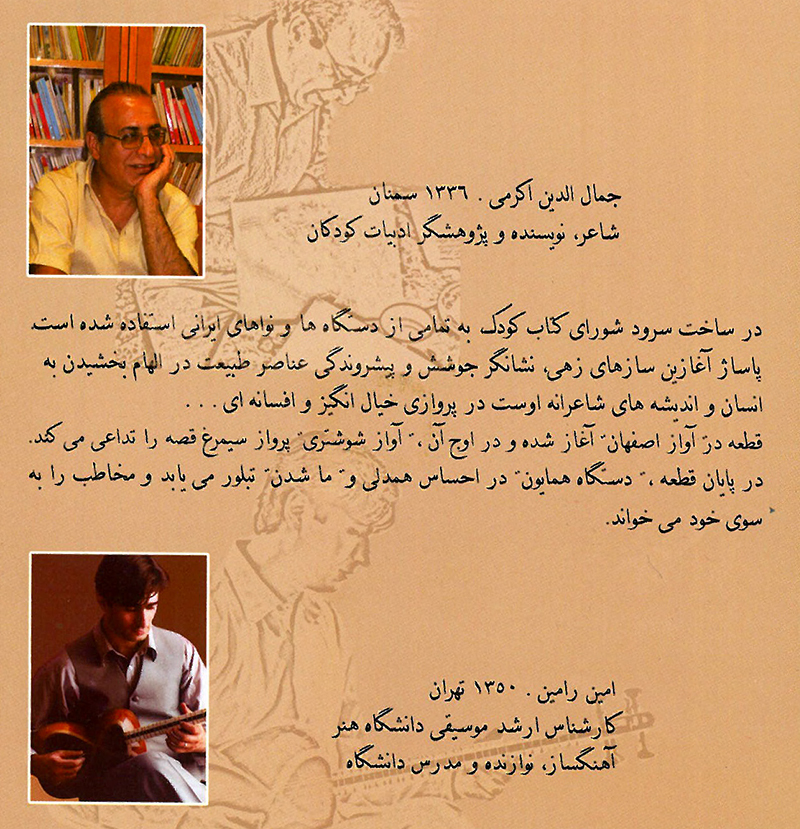 جمال الدین اکرمی . ۱۳۳۶ سمنان
شاعر، نویسنده و پژوهشگر ادبیات کودکان
در ساخت سرود شورای کتاب کودک به تمامی از دستگاه ها و نواهای ایرانی استفاده شده است.
پاساژ آغازین سازهای زهی، نشانگر جوشش و پیشروندگی عناصر طبیعت در الهام بخشیدن به
انسان و اندیشه های شاعرانه اوست در پروازی خیال انگیز و افسانه ای . . .
قطعه در" آواز اصفهان" آغاز شده و در اوج آن ،" آواز شوشتری" پرواز سیمرغ قصه را تداعی می کند.
در پایان قطعه ،" دستگاه همایون" در احساس همدلی و" ما شدن" تبلور می یابد و مخاطب را به
سوی خود می خواند.
امین رامین . ۱۳۵۰ تهران
کارشناس ارشد موسیقی دانشگاه هنر
آهنگساز، نوازنده و مدرس دانشگاه